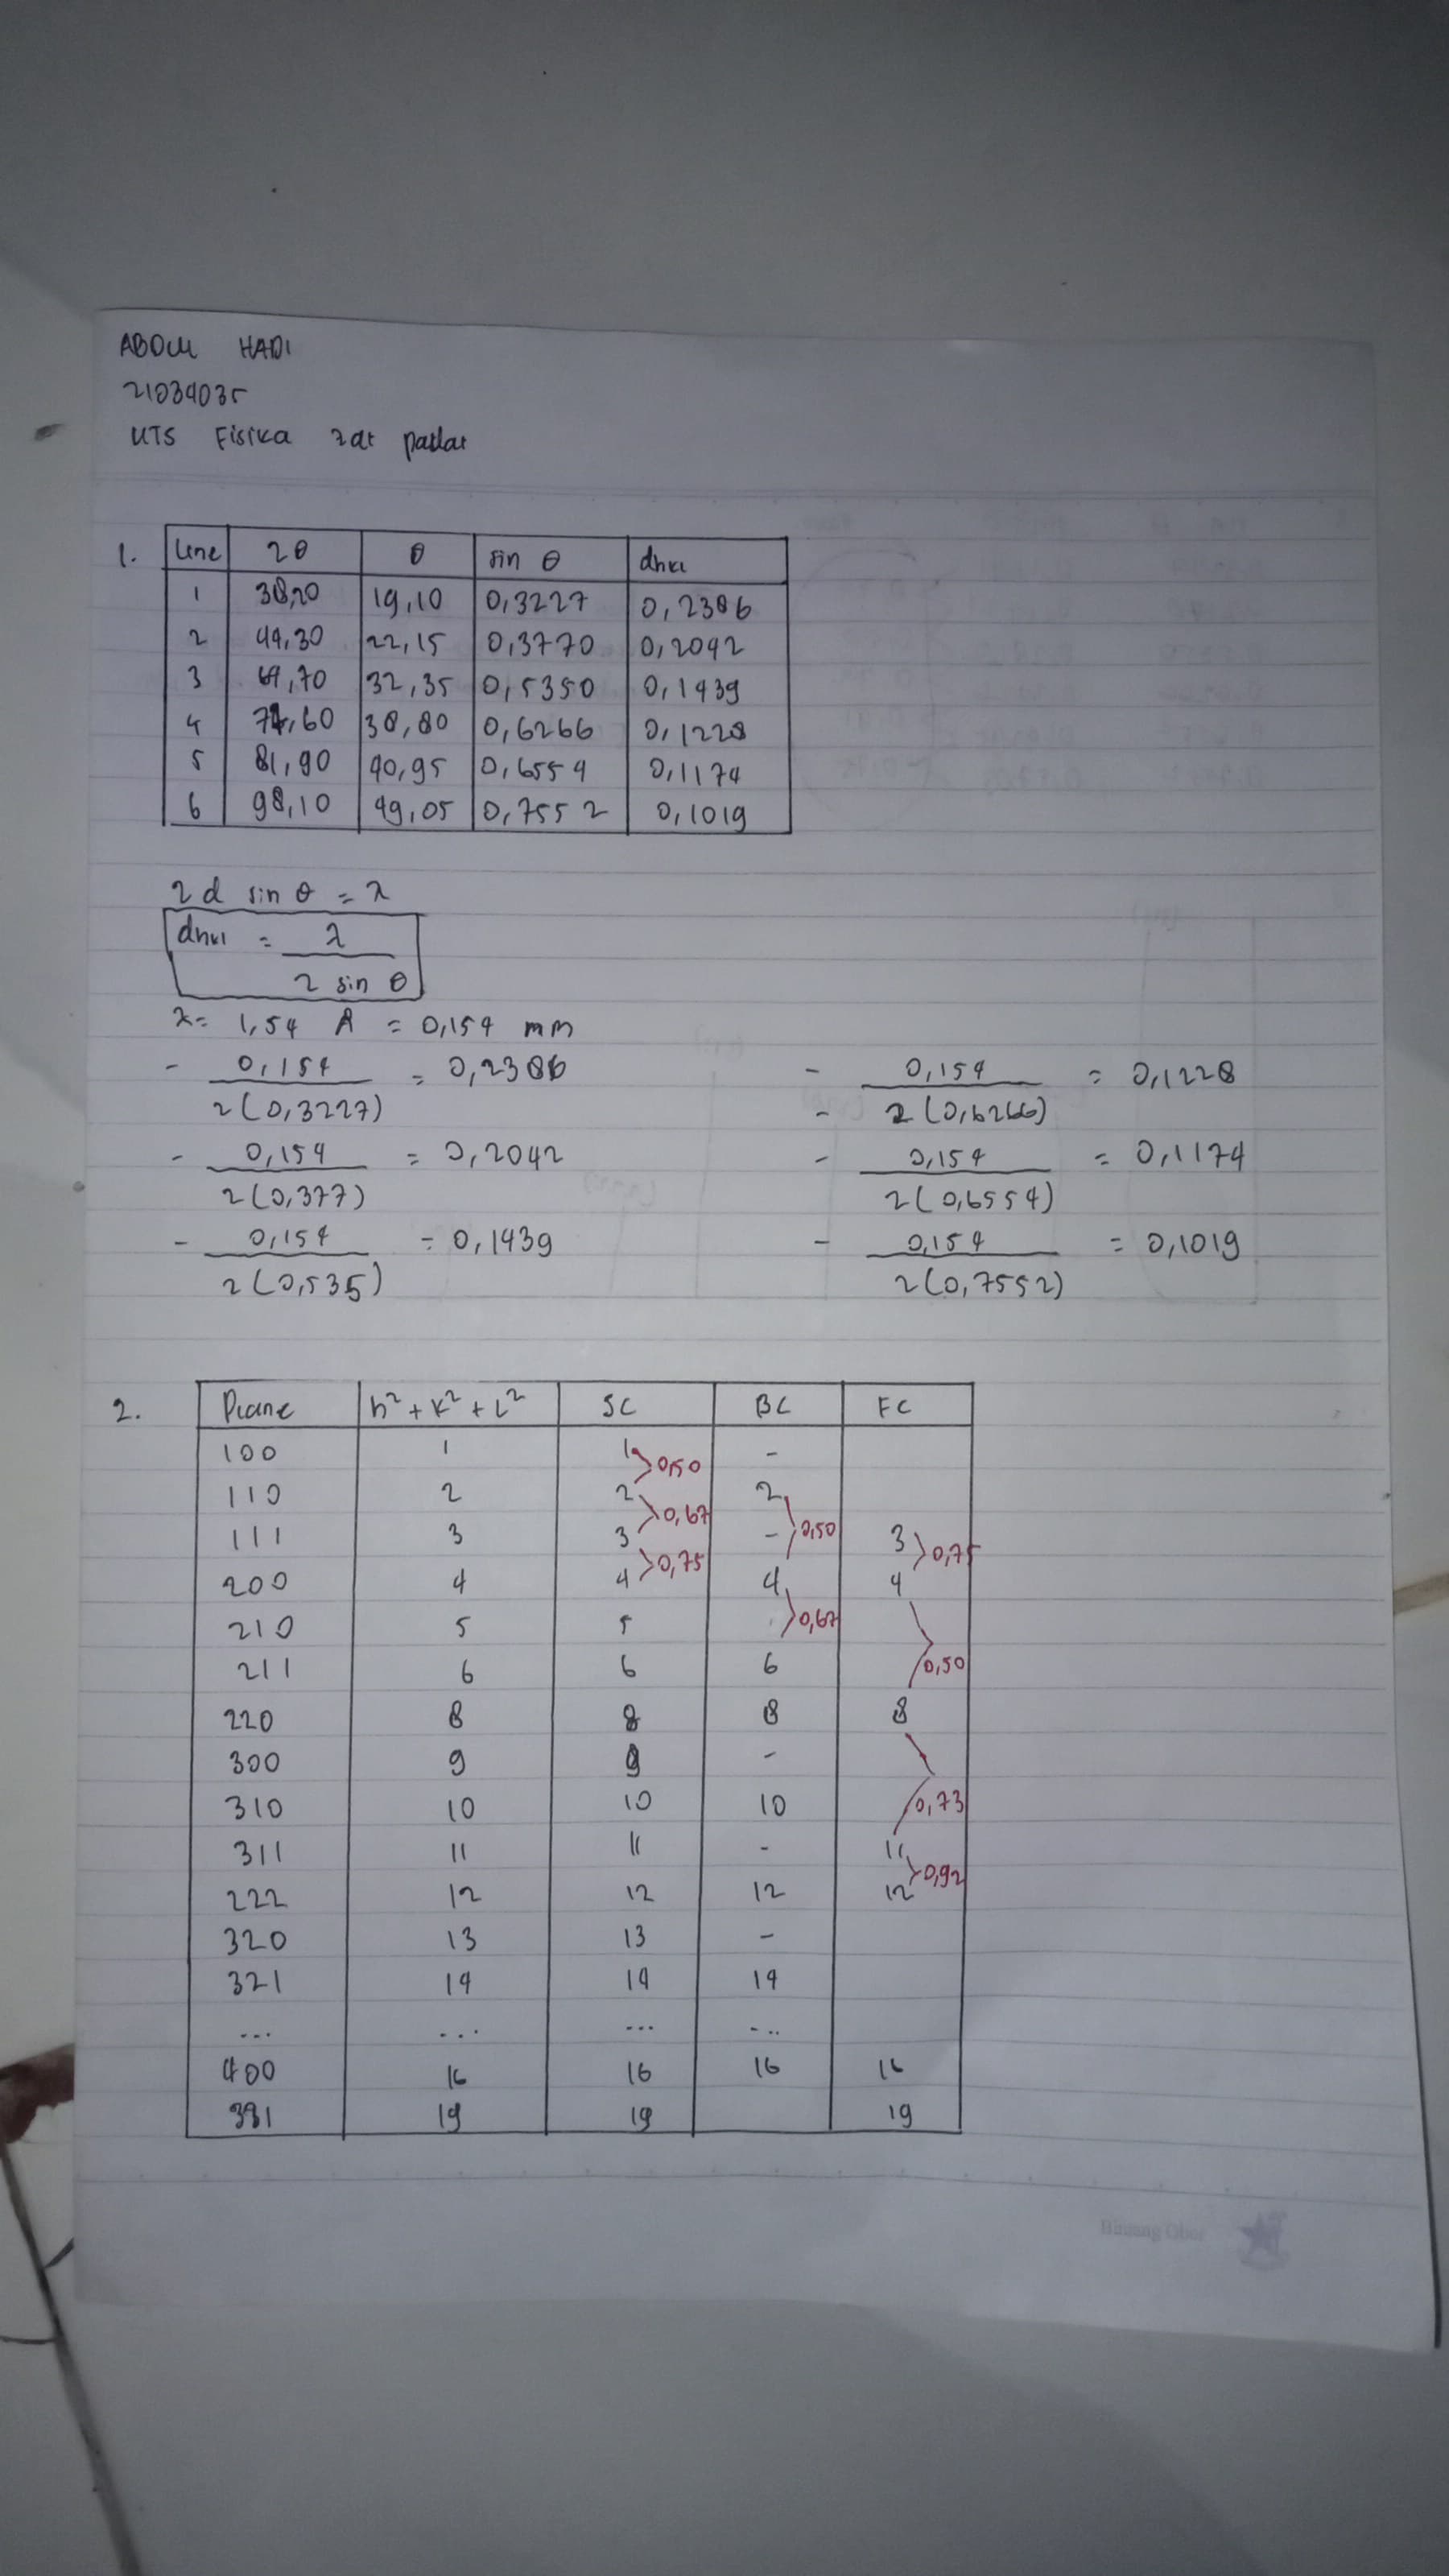 ABDUL HADI
21034035
UTS Fisika zat padat
1.
Line 2θ θ sin θ dhkl
1 38,20 19,10 0,3227 0,2386
2 44,30 22,15 0,3770 0,2042
3 64,70 32,35 0,5350 0,1439
4 77,60 38,80 0,6266 0,1228
5 81,90 40,95 0,6554 0,1174
6 98,10 49,05 0,7552 0,1019
2 d sin θ = λ
dhkl = λ / 2 sin θ
λ = 1,54 Å = 0,154 mm
- 0,154 / 2(0,3227) = 0,2386
- 0,154 / 2(0,377) = 0,2042
- 0,154 / 2(0,535) = 0,1439
- 0,154 / 2(0,6266) = 0,1228
- 0,154 / 2(0,6554) = 0,1174
- 0,154 / 2(0,7552) = 0,1019
2.
Plane h² + k² + l² SC BC FC
100 1 1 -
0,50
110 2 2 2
0,67
111 3 3 - 3
0,50
0,75 0,75
200 4 4 4 4
0,67
210 5 5
211 6 6 6
0,50
220 8 8 8 8
300 9 9 -
310 10 10 10
0,73
311 11 11 - 11
0,92
222 12 12 12 12
320 13 13 -
321 14 14 14
... ... ... ...
400 16 16 16 16
331 19 19 19